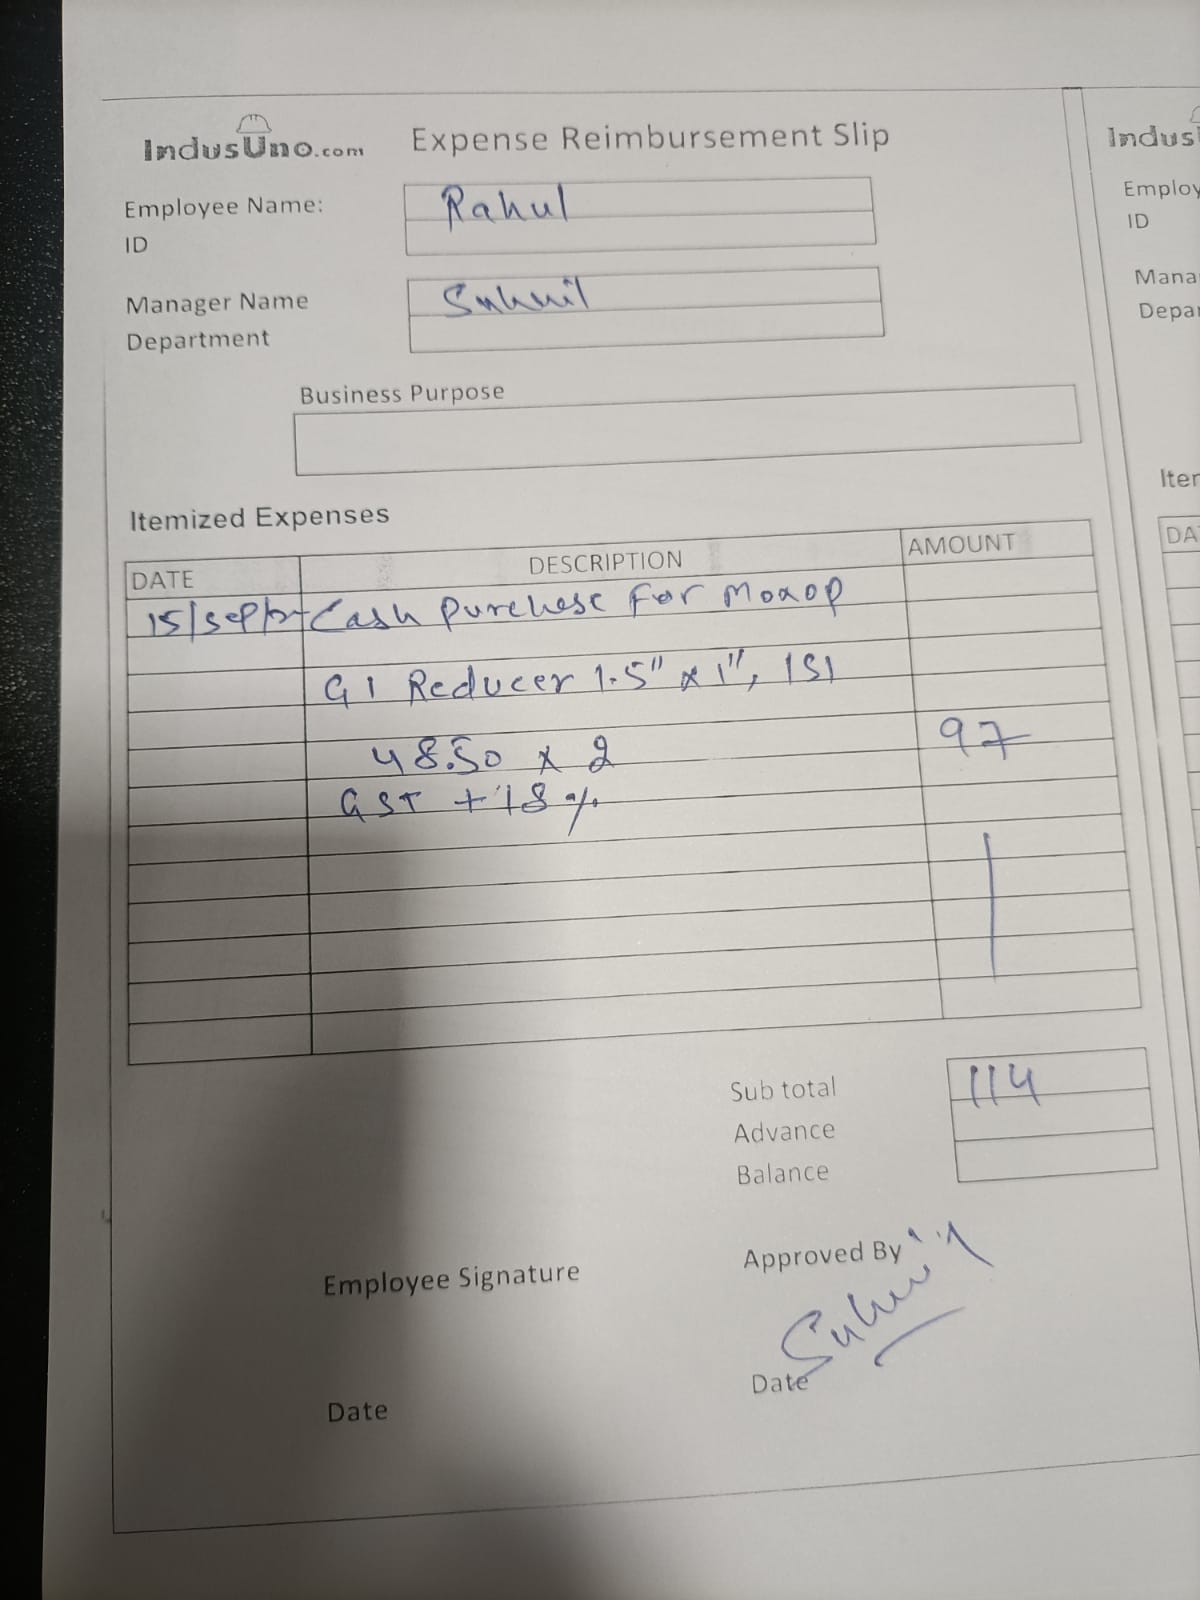 IndusUno.com Expense Reimbursement Slip
Employee Name: Rahul
ID
Manager Name
Department
Business Purpose
Itemized Expenses
DATE DESCRIPTION AMOUNT
15/Sep/ Cash Purchese For Moxop
GI Reducer 1.5" x 1", ISI
48.50 x 2 97
GST +18%
Sub total 114
Advance
Balance
Employee Signature
Approved By
Date
Date
Indus
Employ
ID
Mana
Depar
Iter
DA